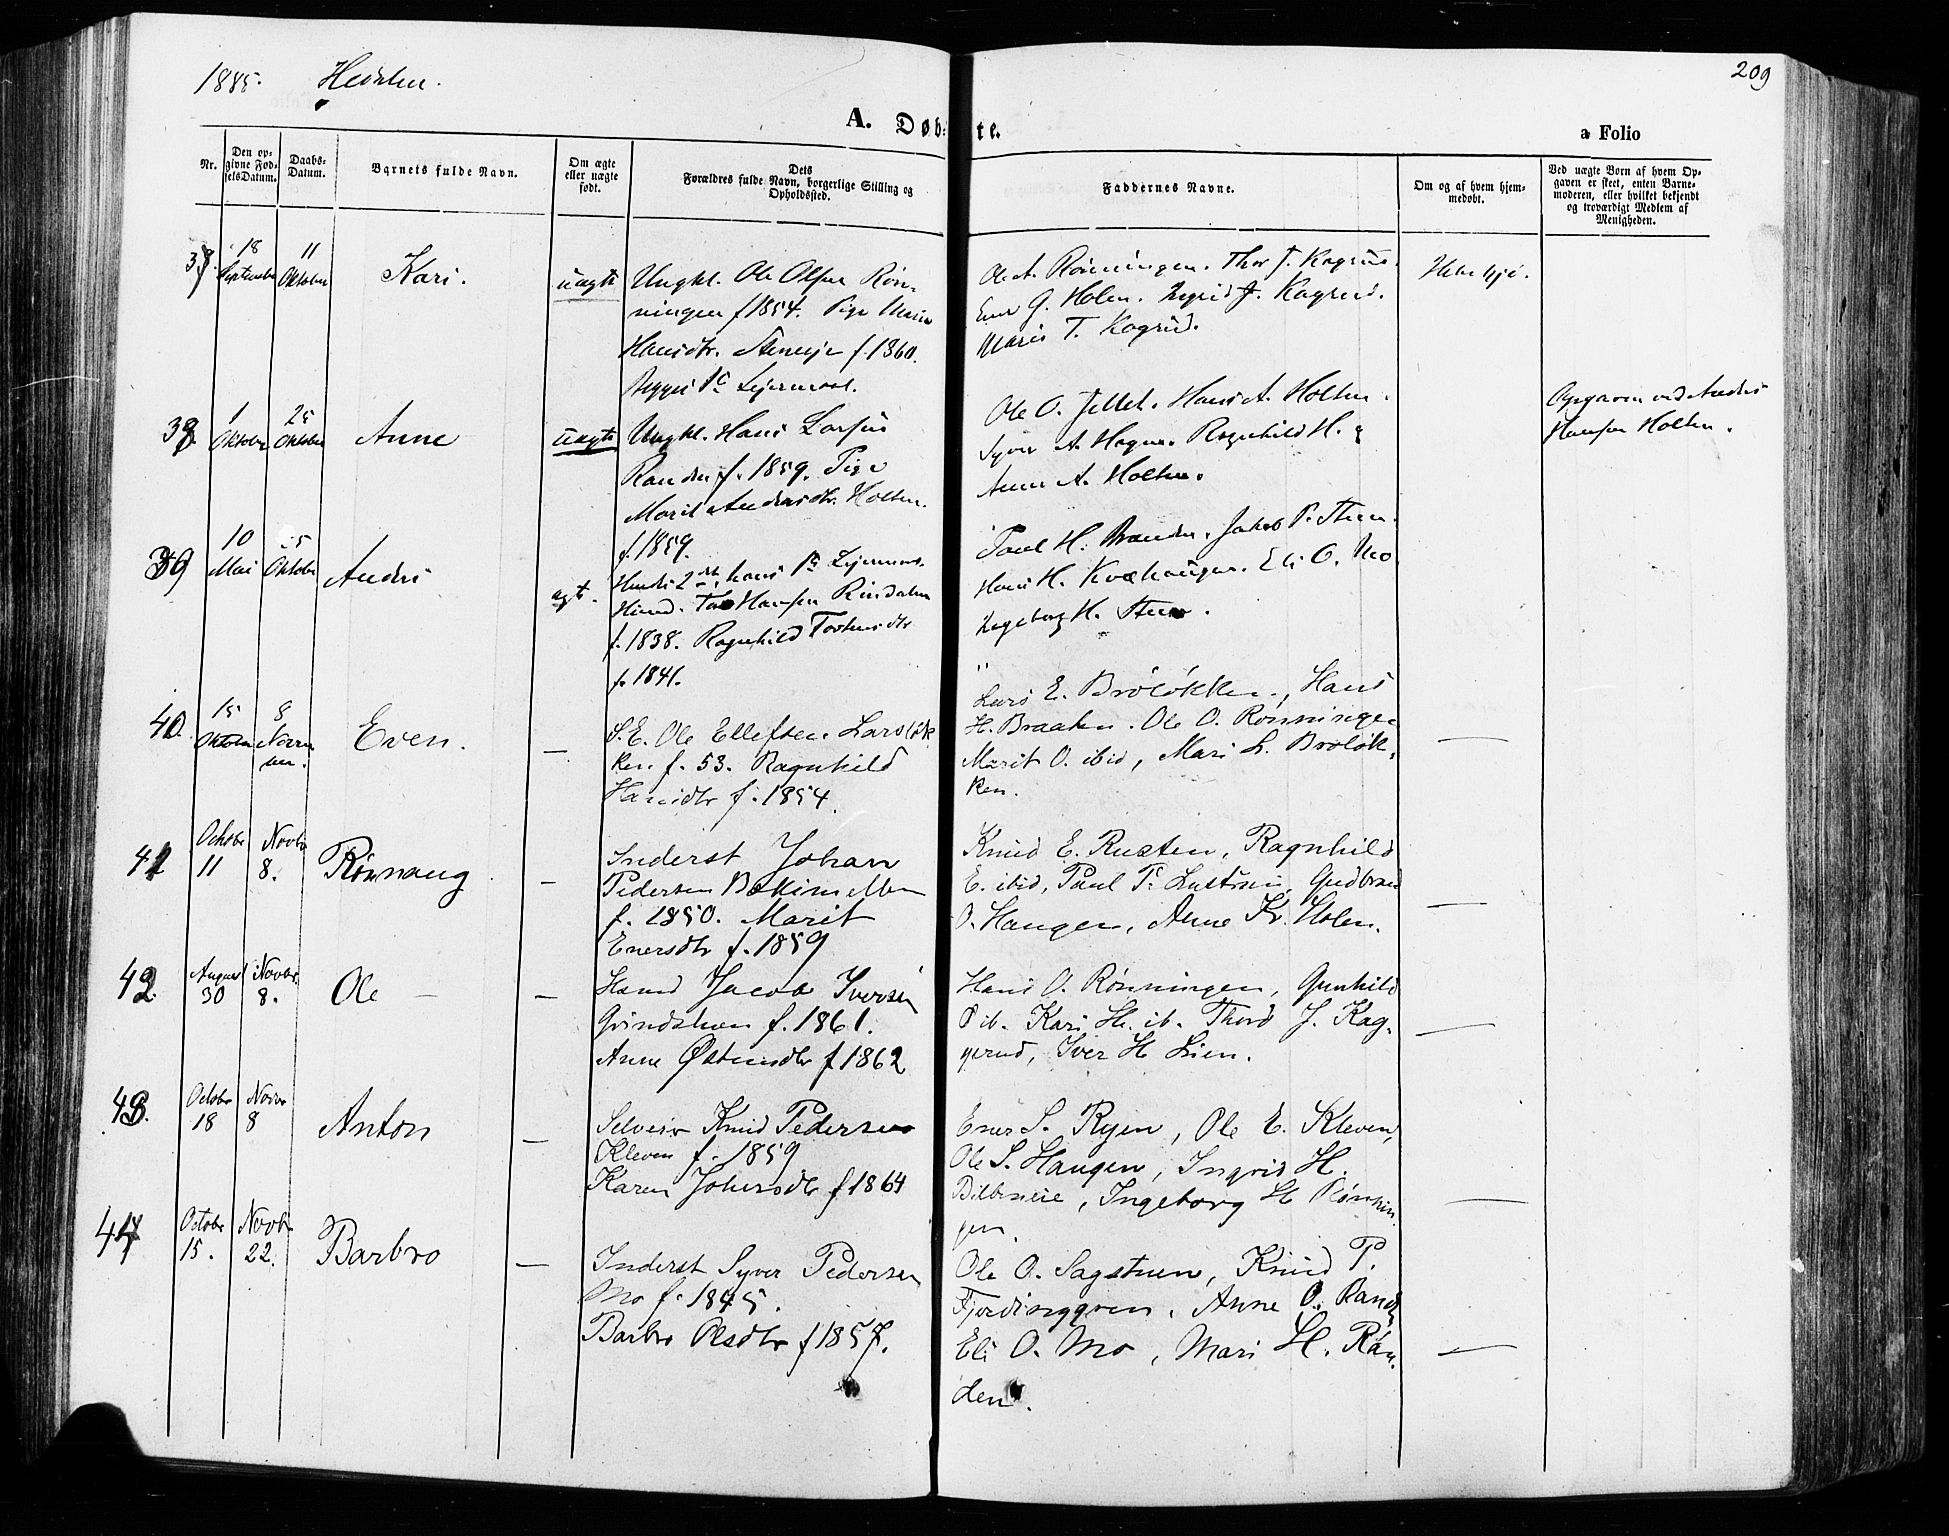 1885. Hedalen.
209
A. Døbte.
a Folio
Nr.
Den op-
givne Fød-
selsDatum.
Daabs-
Datum.
Barnets fulde Navn.
Om ægte
eller uægte
født.
Dets
Forældres fulde Navn, borgerlige Stilling og
Opholdssted.
Faddernes Navne.
Om og af hvem hjem-
medøbt.
Ved uægte Børn af hvem Op-
gaven er skeet, enten Barne-
moderen, eller hvilket bekjendt
og troværdigt Medlem af
Menigheden.
37.
18
September
11
Oktober
Kari.
uægte
Ungkl. Ole Olsen Røn-
ningen f 1854. Pige Marie
Hansdtr. f. 1860.
Begges 1ste Lejermaal.
Ole A. Rønningen. Thor J. Kagrud.
G. Holen. Ingrid J. Kagrud.
Marie T. Kagrud.
38
1
Oktober
25
Oktober
Anne
uægte
Ungkl. Hans Larsen
Randen f. 1859. Pige
Marit Andersdtr. Holten.
f. 1859.
Hendes 2det, hans 1ste Lejermaal.
Ole O. Hans A. Holten.
Syver A. Ragnhild H. &
Anne A. Holten.
Opgaven ved Anders
Hansen Holten.
39
10
Mai
25
Oktober
Anders
ægte.
Hansen Rindalen
f. 1838. Ragnhild Tostensdtr
f. 1841.
Paul H. Jakob P. Steen.
Hans H. Eli O. Mo
Ingeborg H. Steen.
40.
15
Oktober
8
Novem
ber.
Even.
—
S.E. Ole Ellefsen
ken f. 53. Ragnhild
Hansdtr f. 1854.
Lars E. Broløkken, Hans
H. Braaten. Ole O. Rønningen
Marit O. ibid, Mari L. Broløk-
ken.
—
41
Octobr
11
Novbr
8.
Rønnaug
—
Inderst Johan
Pedersen
f. 1850. Marit
Enersdtr f. 1859
Knud E. Rusten, Ragnhild
E. ibid, Paul P. Gudbrand
O. Haugen, Anne Kr. Holen.
—
42.
August
30
Novbr.
8.
Ole
—
Hmd Jacob Iversen
f. 1861.
Anne Østensdtr f 1862
Hans O. Rønningen, Gunhild
P ib. Kari H. ib. Thord J. Kag-
gerud, Iver H Lien.
—
43.
Octobr
18
Novbr
8
Anton
—
Selveier Knud Pedersen
Kleven f. 1859
Karen Johersdtr f 1864
Ener S. Ryen, Ole E. Kleven,
Ole S. Haugen, Ingrid H.
Bilbeneie, Ingeborg H Rønnin
gen.
—
44
Octobr
15.
Novbr
22.
Barbro
—
Inderst Syver Pedersen
Mo f. 1845.
Barbro Olsdtr f 1857.
Ole O. Sagstuen, Knud P.
Fjordinggren, Anne O. Rand
Eli O. Mo, Mari H. Ran-
den.
—